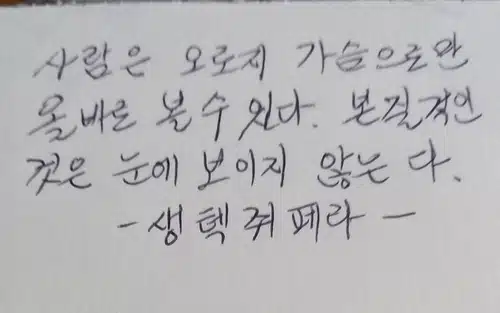 사람은 오로지 가슴으로만
올바로 볼 수 있다. 본질적인
것은 눈에 보이지 않는다.
- 생텍쥐페리 -